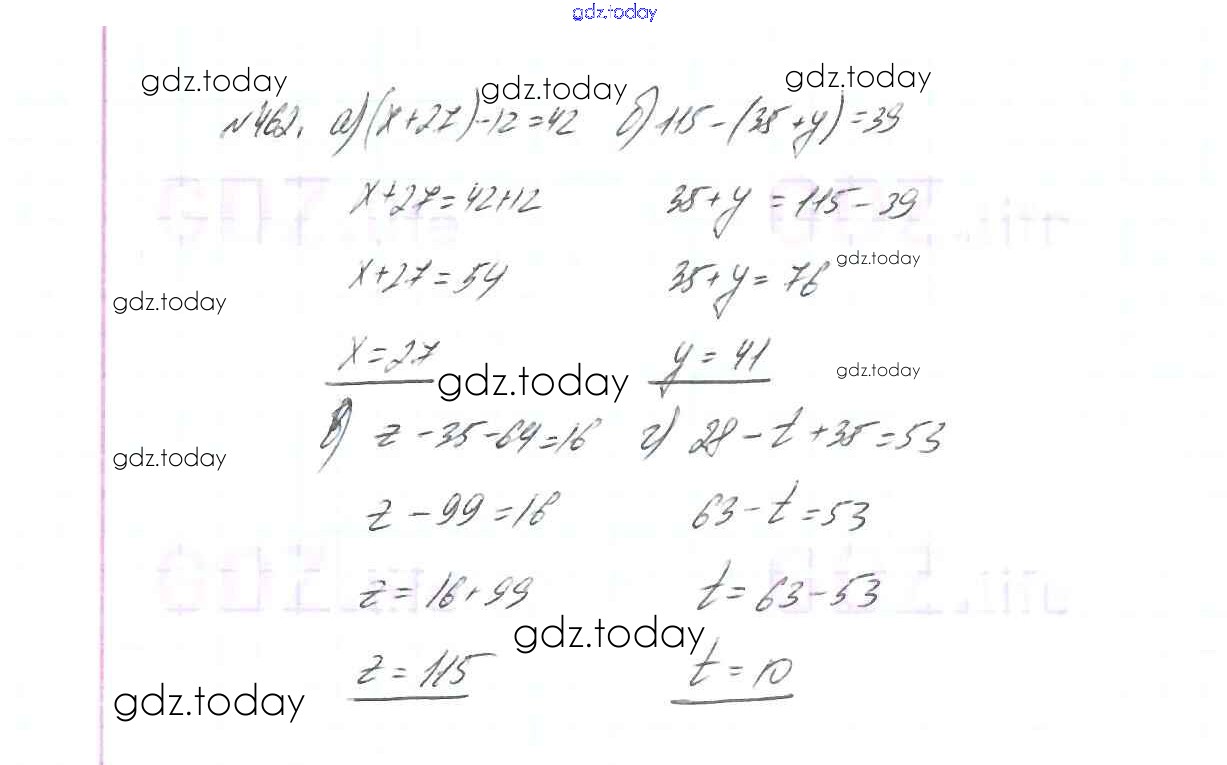 gdz.today
gdz.today gdz.today gdz.today
№462. а) (x+27)-12=42 б) 115-(35+y)=39
x+27=42+12 35+y=115-39
gdz.today
x+27=54 35+y=76
gdz.today
x=27 y=41
gdz.today gdz.today
в) z-35-64=16 г) 28-t+35=53
gdz.today
z-99=16 63-t=53
z=16+99 t=63-53
gdz.today
z=115 t=10
gdz.today